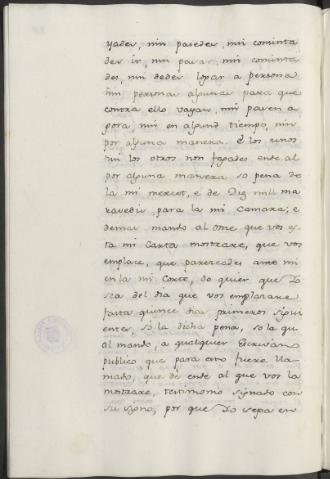 yader, nin pareder, nin cominta
der ir, nin pasar, nin cominta
des, nin deder logar a persona
nin personas algunas para que
contra ello vayan, nin pasen a
gora, nin en algund tiempo, nin
por alguna manera. E los unos
nin los otros non fagades ende al
por alguna manera so pena de
la mi merced, e de Diez mill ma
ravedis para la mi Camara; e
demas mando al ome que vos es
ta mi Carta mostrare, que vos
emplace, que parescades ante mi
en la mi Corte, do quier que Yo
sea del dia que vos emplazare
fasta quince dias primeros sigui
entes, so la dicha pena, so la qu
al mando a qualquier Escrivano
publico que para esto fuere lla
mado, que dé ende al que vos la
mostrare, testimonio signado con
su signo, por que Yo sepa en